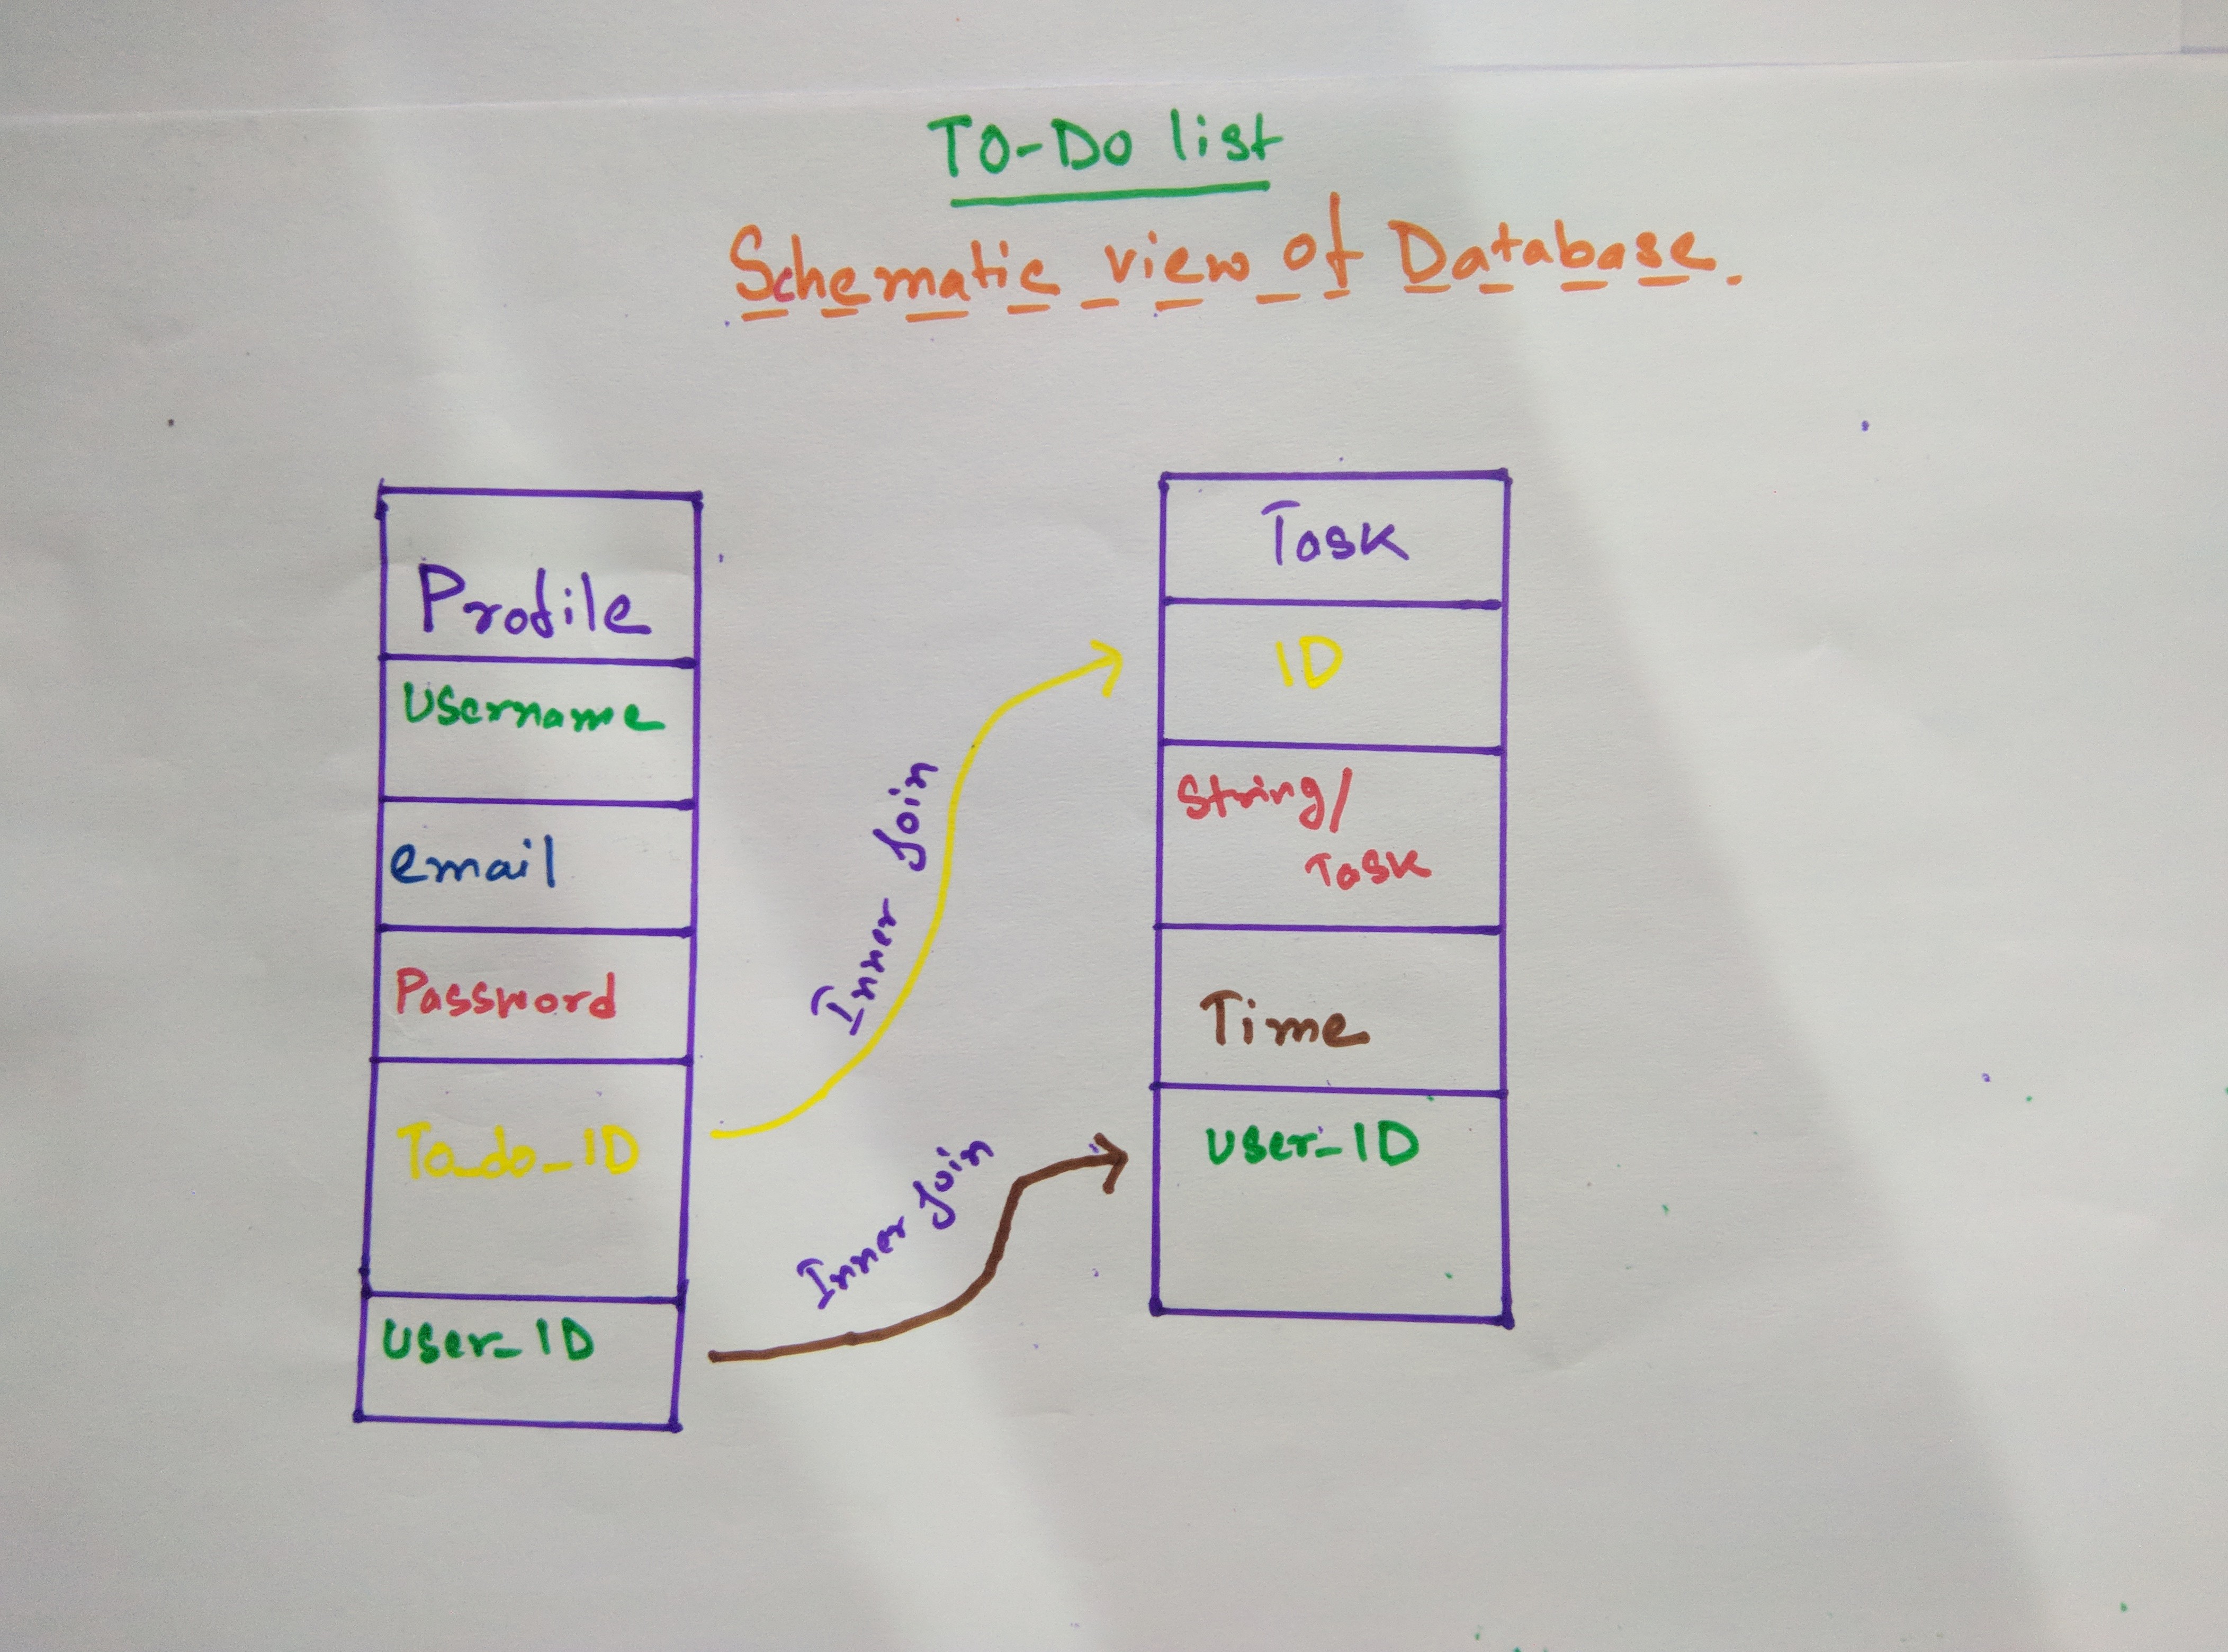 TO-DO list
Schematic view of Database.
Profile
Username
email
Password
To_do_ID
User_ID
Inner Join
Inner Join
Task
ID
String/
Task
Time
User_ID